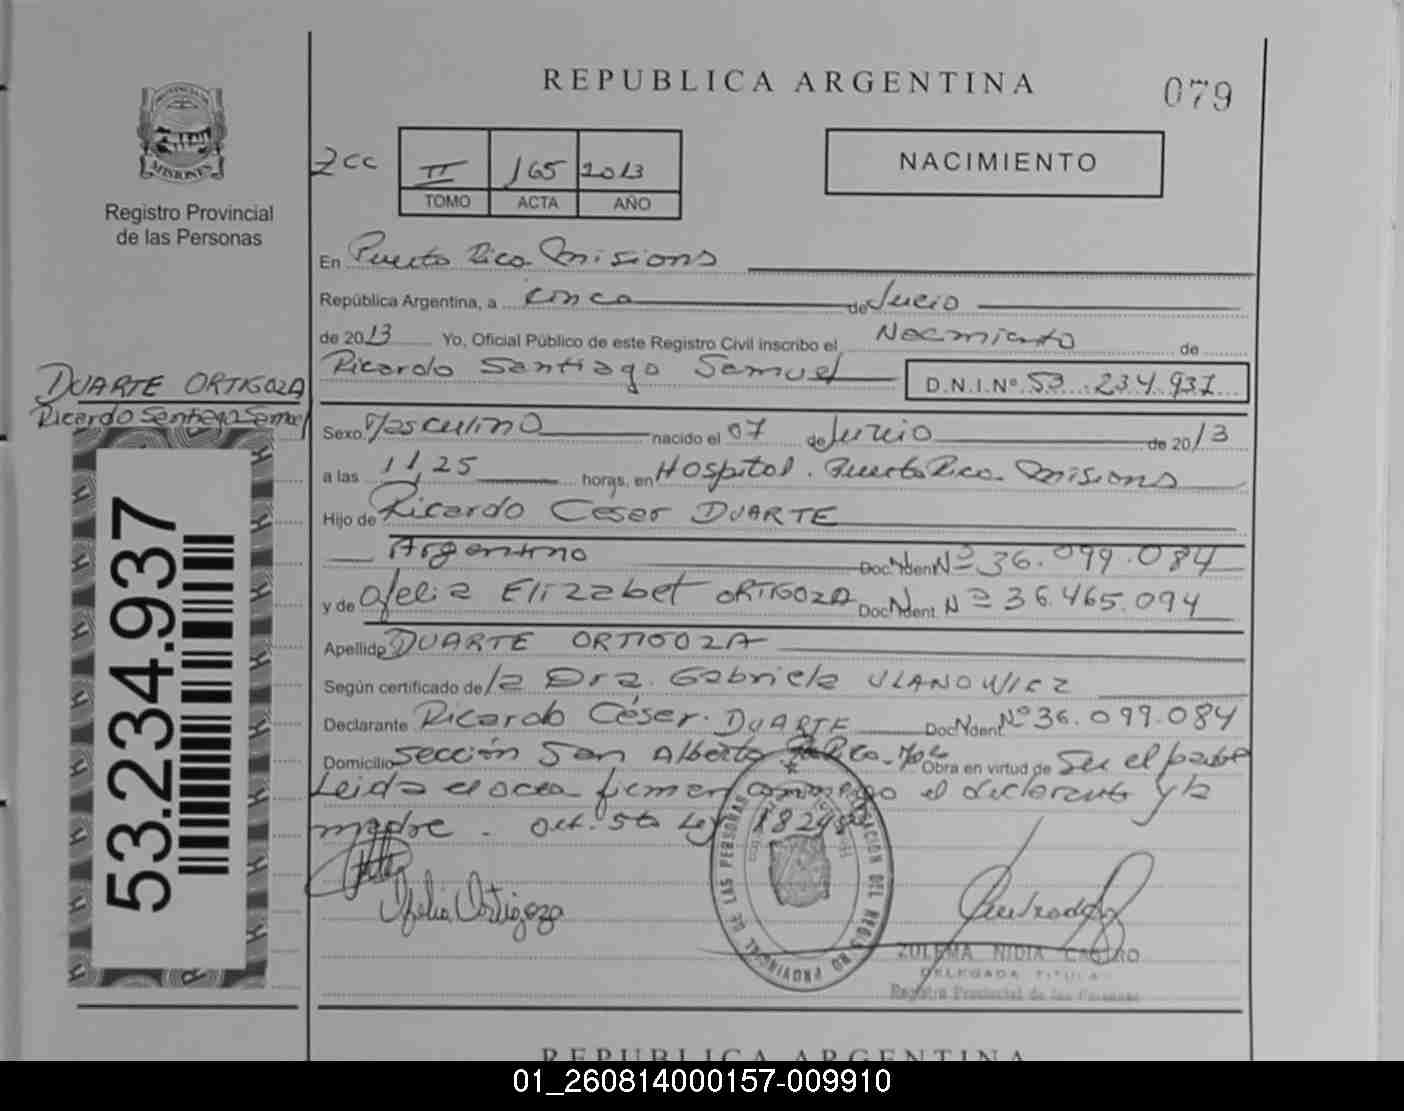 REPUBLICA ARGENTINA
079
PROVINCIA DE
MISIONES
Registro Provincial
de las Personas
2cc
II 165 2013
TOMO ACTA AÑO
NACIMIENTO
En Puerto Rico Misions
República Argentina, a cinco de Jucio
de 2013 Yo, Oficial Público de este Registro Civil inscribo el Nacimiento de
Ricardo Santiago Samuel D.N.I.Nº 53.234.937
DUARTE ORTIGOZA
Ricardo Santiago Samuel
Sexo Masculino nacido el 07 de Junio de 2013
a las 11,25 horas, en Hospital. Puerto Rico Misions
Hijo de Ricardo César DUARTE
Argentino Doc. Ident. Nº 36.099.084
y de Ofelia Elizabet ORTIGOZA Doc. Ident. Nº 36.465.094
Apellido DUARTE ORTIGOZA
Según certificado de la Dra. Gabriela ULANOWICZ
Declarante Ricardo César. DUARTE Doc. Ident. Nº 36.099.084
Domicilio sección San Alberto Pto Rico. Mnes Obra en virtud de Ser el padre
Leida el acta firman conmigo el declarante y la
madre. Art. 5to Ley 18248
53.234.937
Ofelia Ortigoza
DELEGACION DEL REGISTRO PROVINCIAL DE LAS PERSONAS
ZULEMA NIDIA CASTRO
DELEGADA TITULAR
Registro Provincial de las Personas
REPUBLICA ARGENTINA
01_260814000157-009910